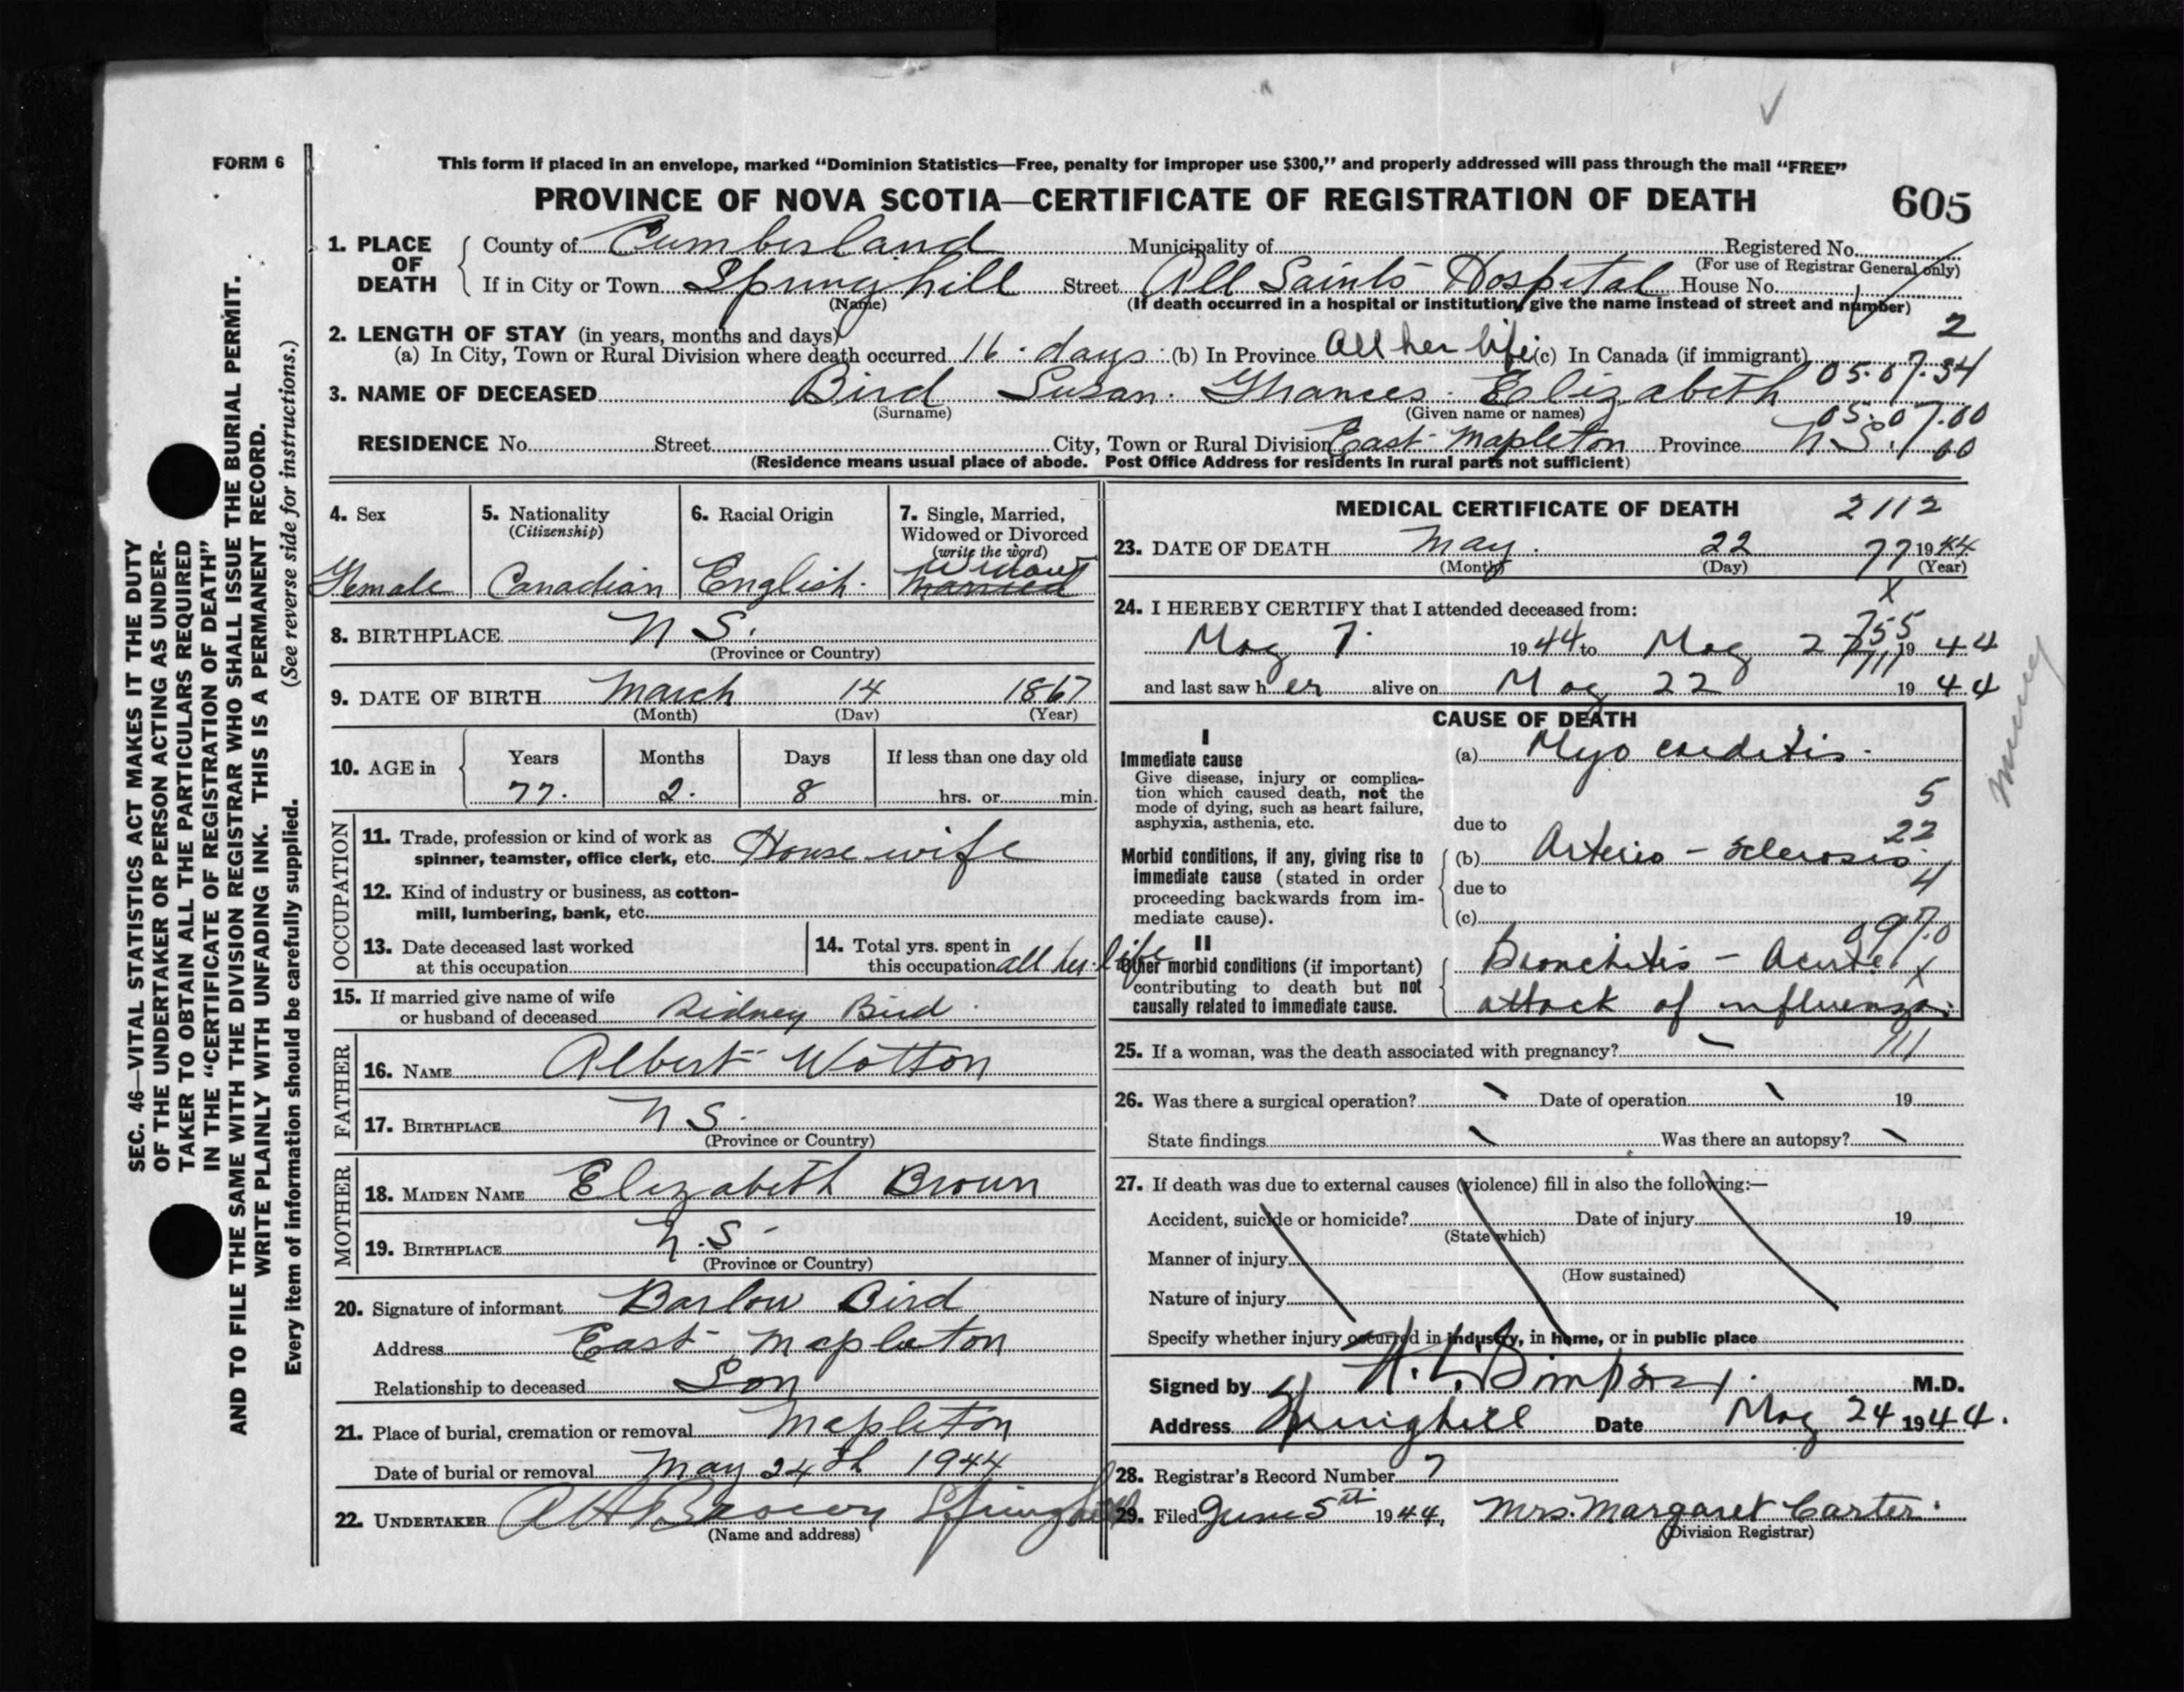 FORM 6
This form if placed in an envelope, marked “Dominion Statistics—Free, penalty for improper use $300,” and properly addressed will pass through the mail “FREE”
PROVINCE OF NOVA SCOTIA—CERTIFICATE OF REGISTRATION OF DEATH 605
SEC. 46—VITAL STATISTICS ACT MAKES IT THE DUTY
OF THE UNDERTAKER OR PERSON ACTING AS UNDER-
TAKER TO OBTAIN ALL THE PARTICULARS REQUIRED
IN THE “CERTIFICATE OF REGISTRATION OF DEATH”
AND TO FILE THE SAME WITH THE DIVISION REGISTRAR WHO SHALL ISSUE THE BURIAL PERMIT.
WRITE PLAINLY WITH UNFADING INK. THIS IS A PERMANENT RECORD.
Every item of information should be carefully supplied. (See reverse side for instructions.)
1. PLACE OF DEATH
County of Cumberland Municipality of Registered No.
(For use of Registrar General only)
If in City or Town Springhill Street All Saints Hospital House No.
(Name) (If death occurred in a hospital or institution, give the name instead of street and number)
2. LENGTH OF STAY (in years, months and days) 2
(a) In City, Town or Rural Division where death occurred 16 days (b) In Province All her life (c) In Canada (if immigrant)
05.07.34
3. NAME OF DECEASED Bird Susan. Frances. Elizabeth
(Surname) (Given name or names) 05.07.00
RESIDENCE No. Street City, Town or Rural Division East Mapleton Province N.S. 00
(Residence means usual place of abode. Post Office Address for residents in rural parts not sufficient)
4. Sex
Female
5. Nationality
(Citizenship)
Canadian
6. Racial Origin
English.
7. Single, Married,
Widowed or Divorced
(write the word)
Widow
Married
8. BIRTHPLACE N S.
(Province or Country)
9. DATE OF BIRTH March 14 1867
(Month) (Day) (Year)
10. AGE in
Years Months Days If less than one day old
77. 2. 8 hrs. or min.
OCCUPATION
11. Trade, profession or kind of work as
spinner, teamster, office clerk, etc. Housewife
12. Kind of industry or business, as cotton-
mill, lumbering, bank, etc.
13. Date deceased last worked
at this occupation
14. Total yrs. spent in
this occupation all her life
15. If married give name of wife
or husband of deceased Sidney Bird
FATHER
16. NAME Albert Wotton
17. BIRTHPLACE N S.
(Province or Country)
MOTHER
18. MAIDEN NAME Elizabeth Brown
19. BIRTHPLACE N.S.
(Province or Country)
20. Signature of informant Barlow Bird
Address East Mapleton
Relationship to deceased Son
21. Place of burial, cremation or removal Mapleton
Date of burial or removal May 24th 1944
22. UNDERTAKER A H Brown Springhill
(Name and address)
MEDICAL CERTIFICATE OF DEATH 2112
23. DATE OF DEATH May. 22 77 1944
(Month) (Day) (Year)
X
24. I HEREBY CERTIFY that I attended deceased from:
May 7. 1944 to May 22 1944
and last saw her alive on May 22 1944
CAUSE OF DEATH
I
Immediate cause
Give disease, injury or complica-
tion which caused death, not the
mode of dying, such as heart failure,
asphyxia, asthenia, etc.
(a) Myocarditis.
5
due to
22
Morbid conditions, if any, giving rise to
immediate cause (stated in order
proceeding backwards from im-
mediate cause).
(b) Arterio-sclerosis.
due to 4
(c)
097.0
II
Other morbid conditions (if important)
contributing to death but not
causally related to immediate cause.
Bronchitis - Acute X
attack of influenza.
25. If a woman, was the death associated with pregnancy? — 111
26. Was there a surgical operation? Date of operation 19
State findings Was there an autopsy?
27. If death was due to external causes (violence) fill in also the following:—
Accident, suicide or homicide? Date of injury 19
(State which)
Manner of injury
(How sustained)
Nature of injury
Specify whether injury occurred in industry, in home, or in public place
Signed by H. L. Simpson. M.D.
Address Springhill Date May 24 1944.
28. Registrar's Record Number 7
29. Filed June 5th 1944, Mrs. Margaret Carter.
(Division Registrar)